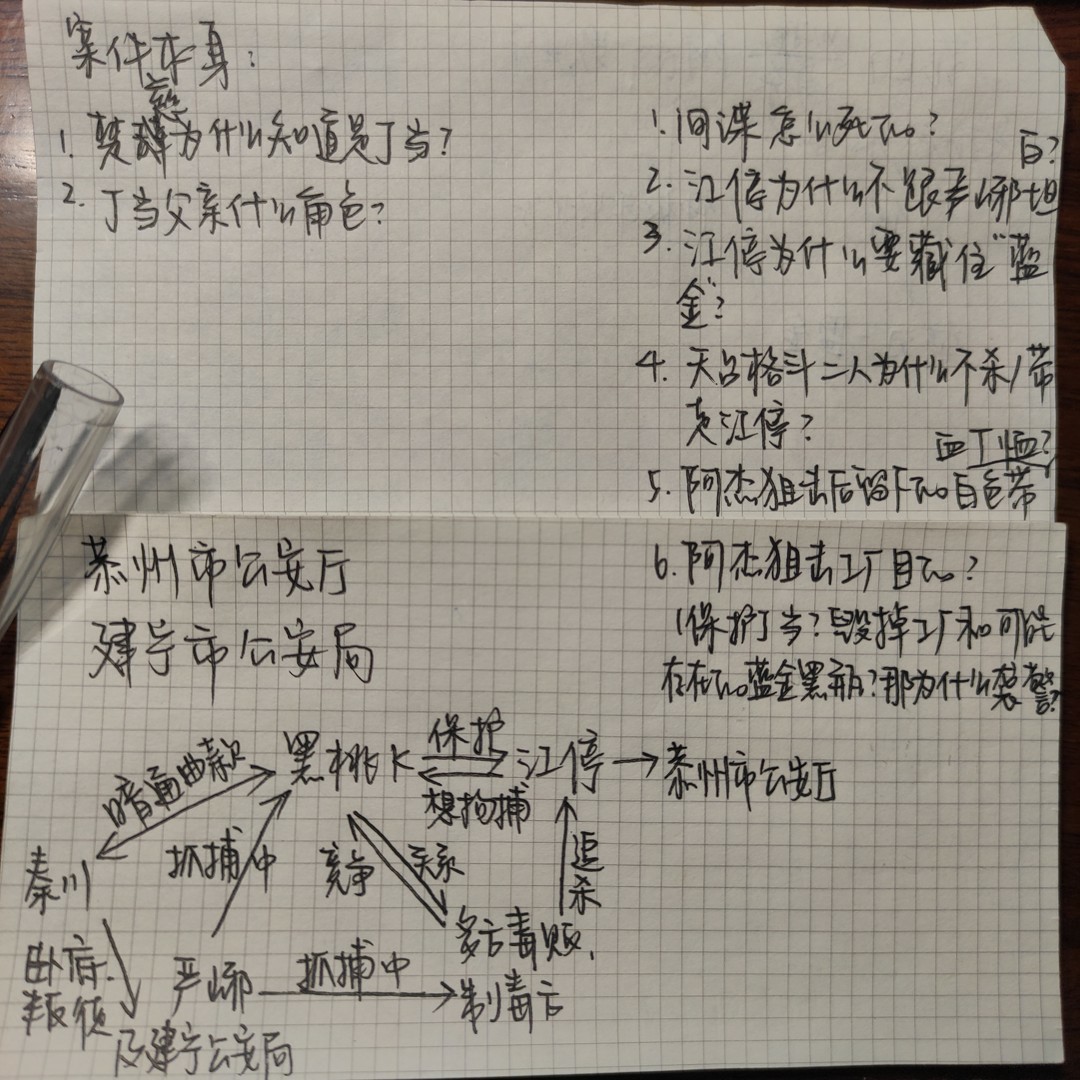 案件本身：
1. 楚慈为什么知道是丁当？
2. 丁当父亲什么角色？
1. 间谍怎么死的？
2. 江停为什么不跟严峫坦白？
3. 江停为什么要藏住“蓝
金”？
4. 天台格斗二人为什么不杀/带
走江停？
5. 阿杰狙击后留下的白色带
恭州市公安厅
建宁市公安局
6. 阿杰狙击工厂目的？
保护丁当？毁掉工厂和可能
存在的蓝金黑瓶？那为什么袭警？
黑桃K
保护
想抓捕
江停
恭州市公安厅
暗通曲款
秦川
抓捕中
竞争
关系
追杀
多方毒贩，
制毒方
卧底，
叛徒
严峫
抓捕中
及建宁公安局